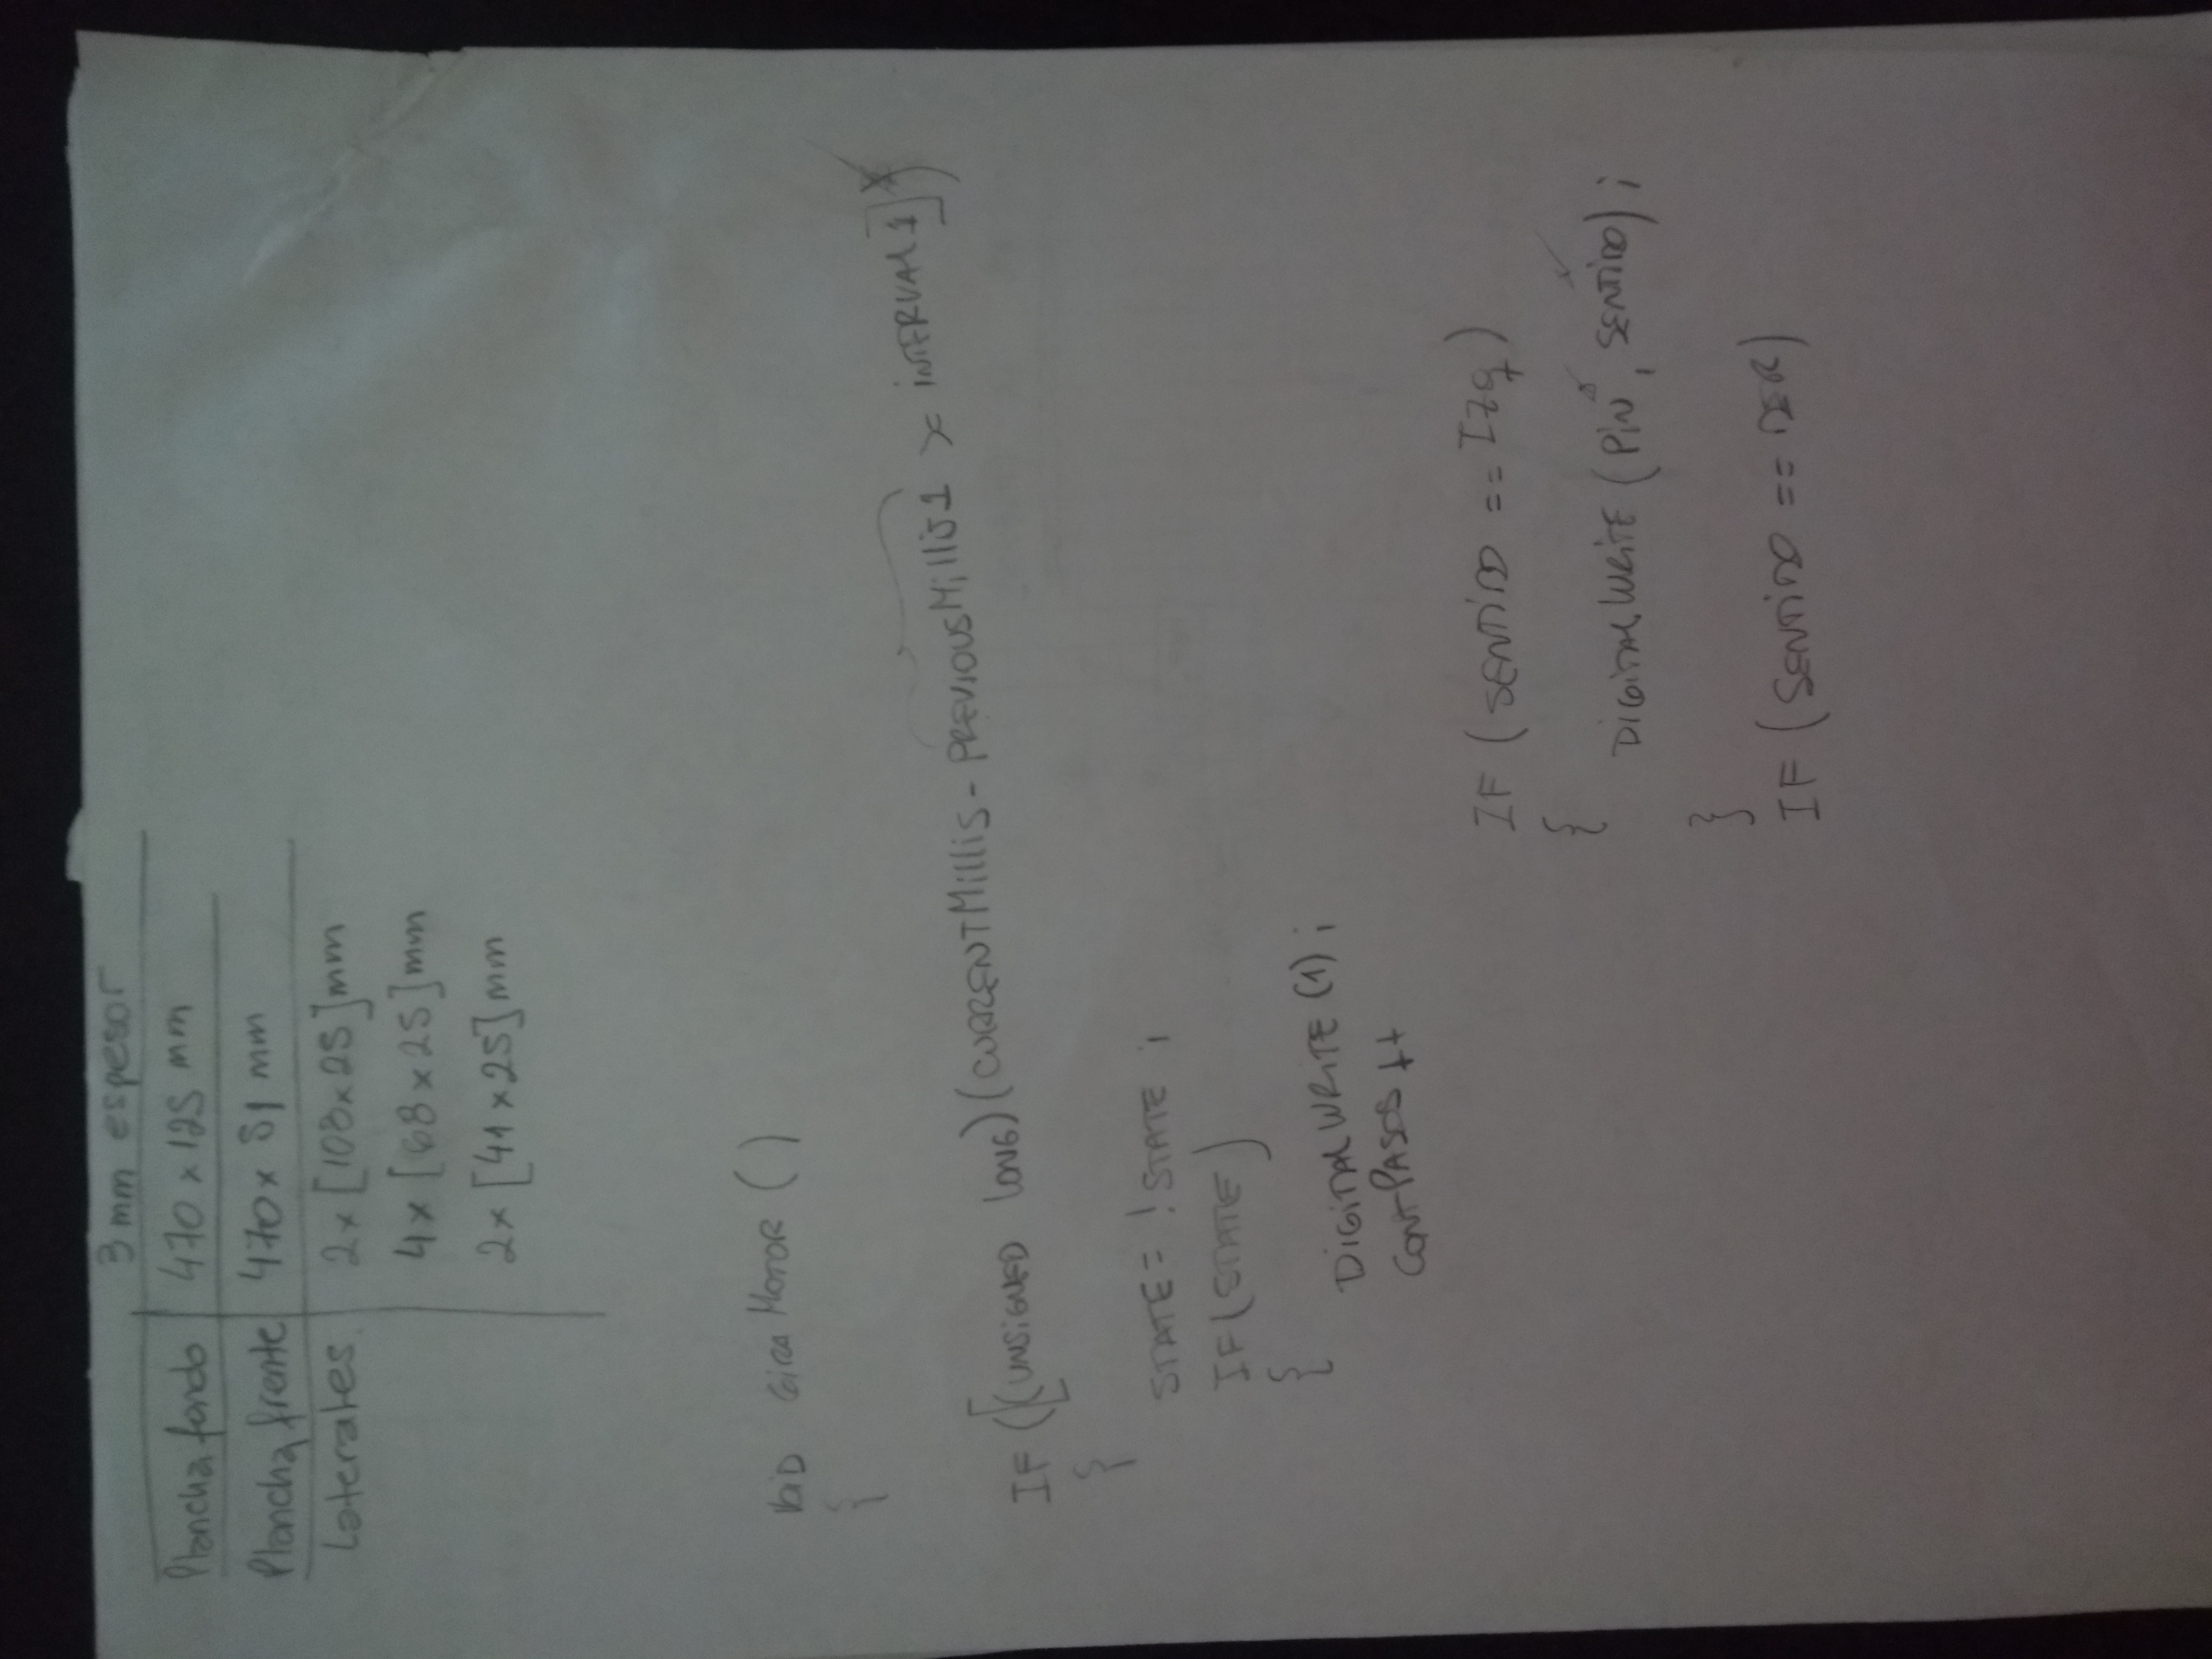 3 mm espesor
Plancha fondo 470 x 125 mm
Plancha frente 470 x 51 mm
Laterales 2 x [108 x 25] mm
4 x [68 x 25] mm
2 x [41 x 25] mm
VOID GIRA MOTOR ()
{
IF ([(UNSIGNED LONG)(CURRENTMillis - PREVIOUSMillis1 >= INTERVAL1])
{
STATE = !STATE ;
IF (STATE)
{
DIGITALWRITE (1) ;
CONTPASOS ++
IF (SENTIDO == Izq)
{
DIGITALWRITE (PIN , SENTIDO) ;
}
IF (SENTIDO == DER)